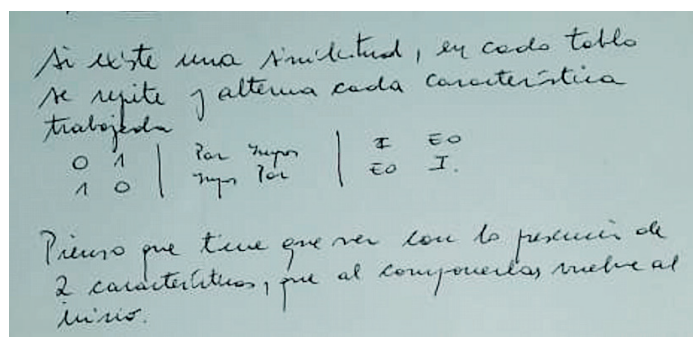 Si existe una similitud, en cada tabla
se repite y alterna cada característica
trabajada
0 1 | Par Impar | I EO
1 0 | Impar Par | EO I.
Pienso que tiene que ver con la presencia de
2 características, que al componerlas vuelve al
inicio.